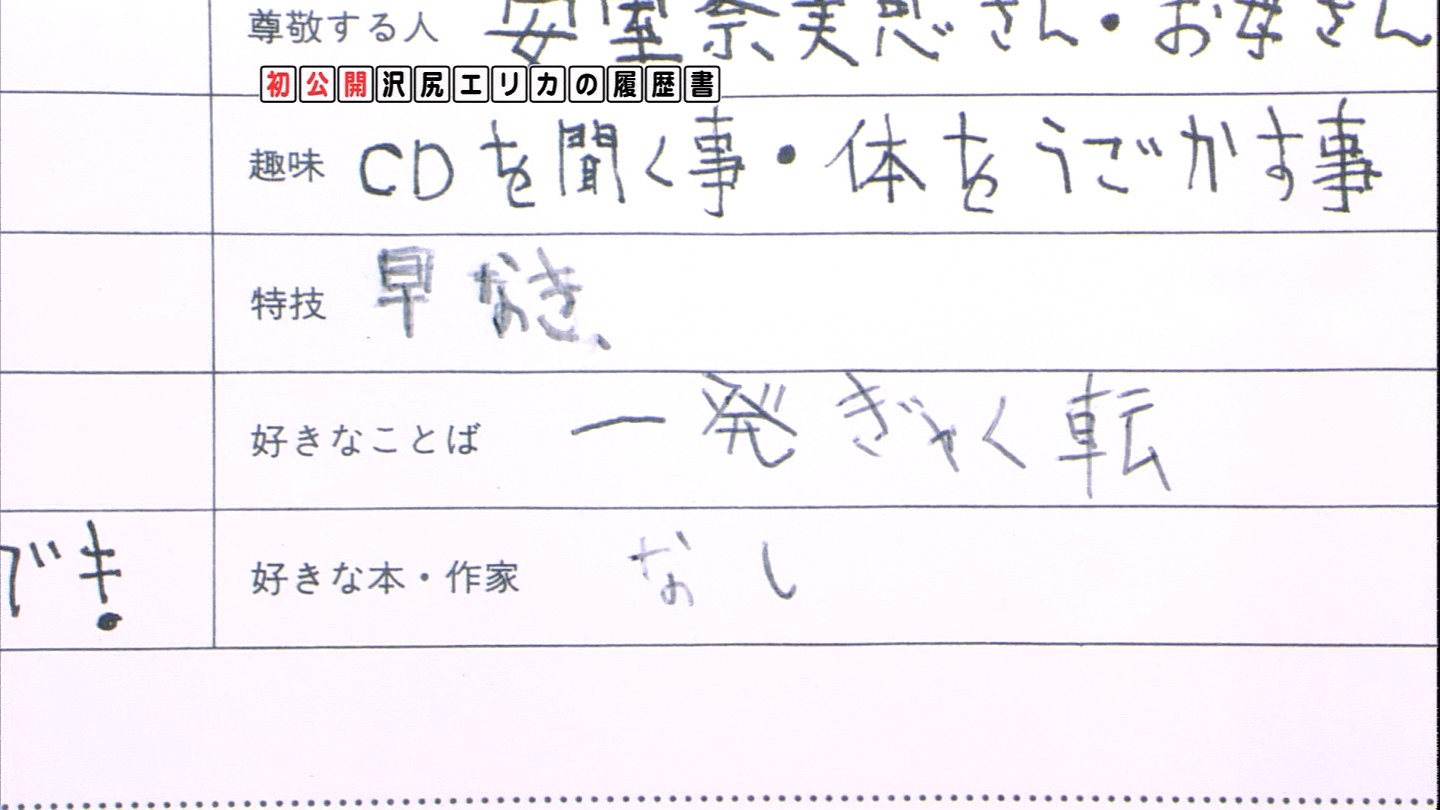 尊敬する人 安室奈美恵さん・お母さん
初公開沢尻エリカの履歴書
趣味 CDを聞く事・体をうごかす事
特技 早なき、
好きなことば 一発ぎゃく転
好きな本・作家 なし